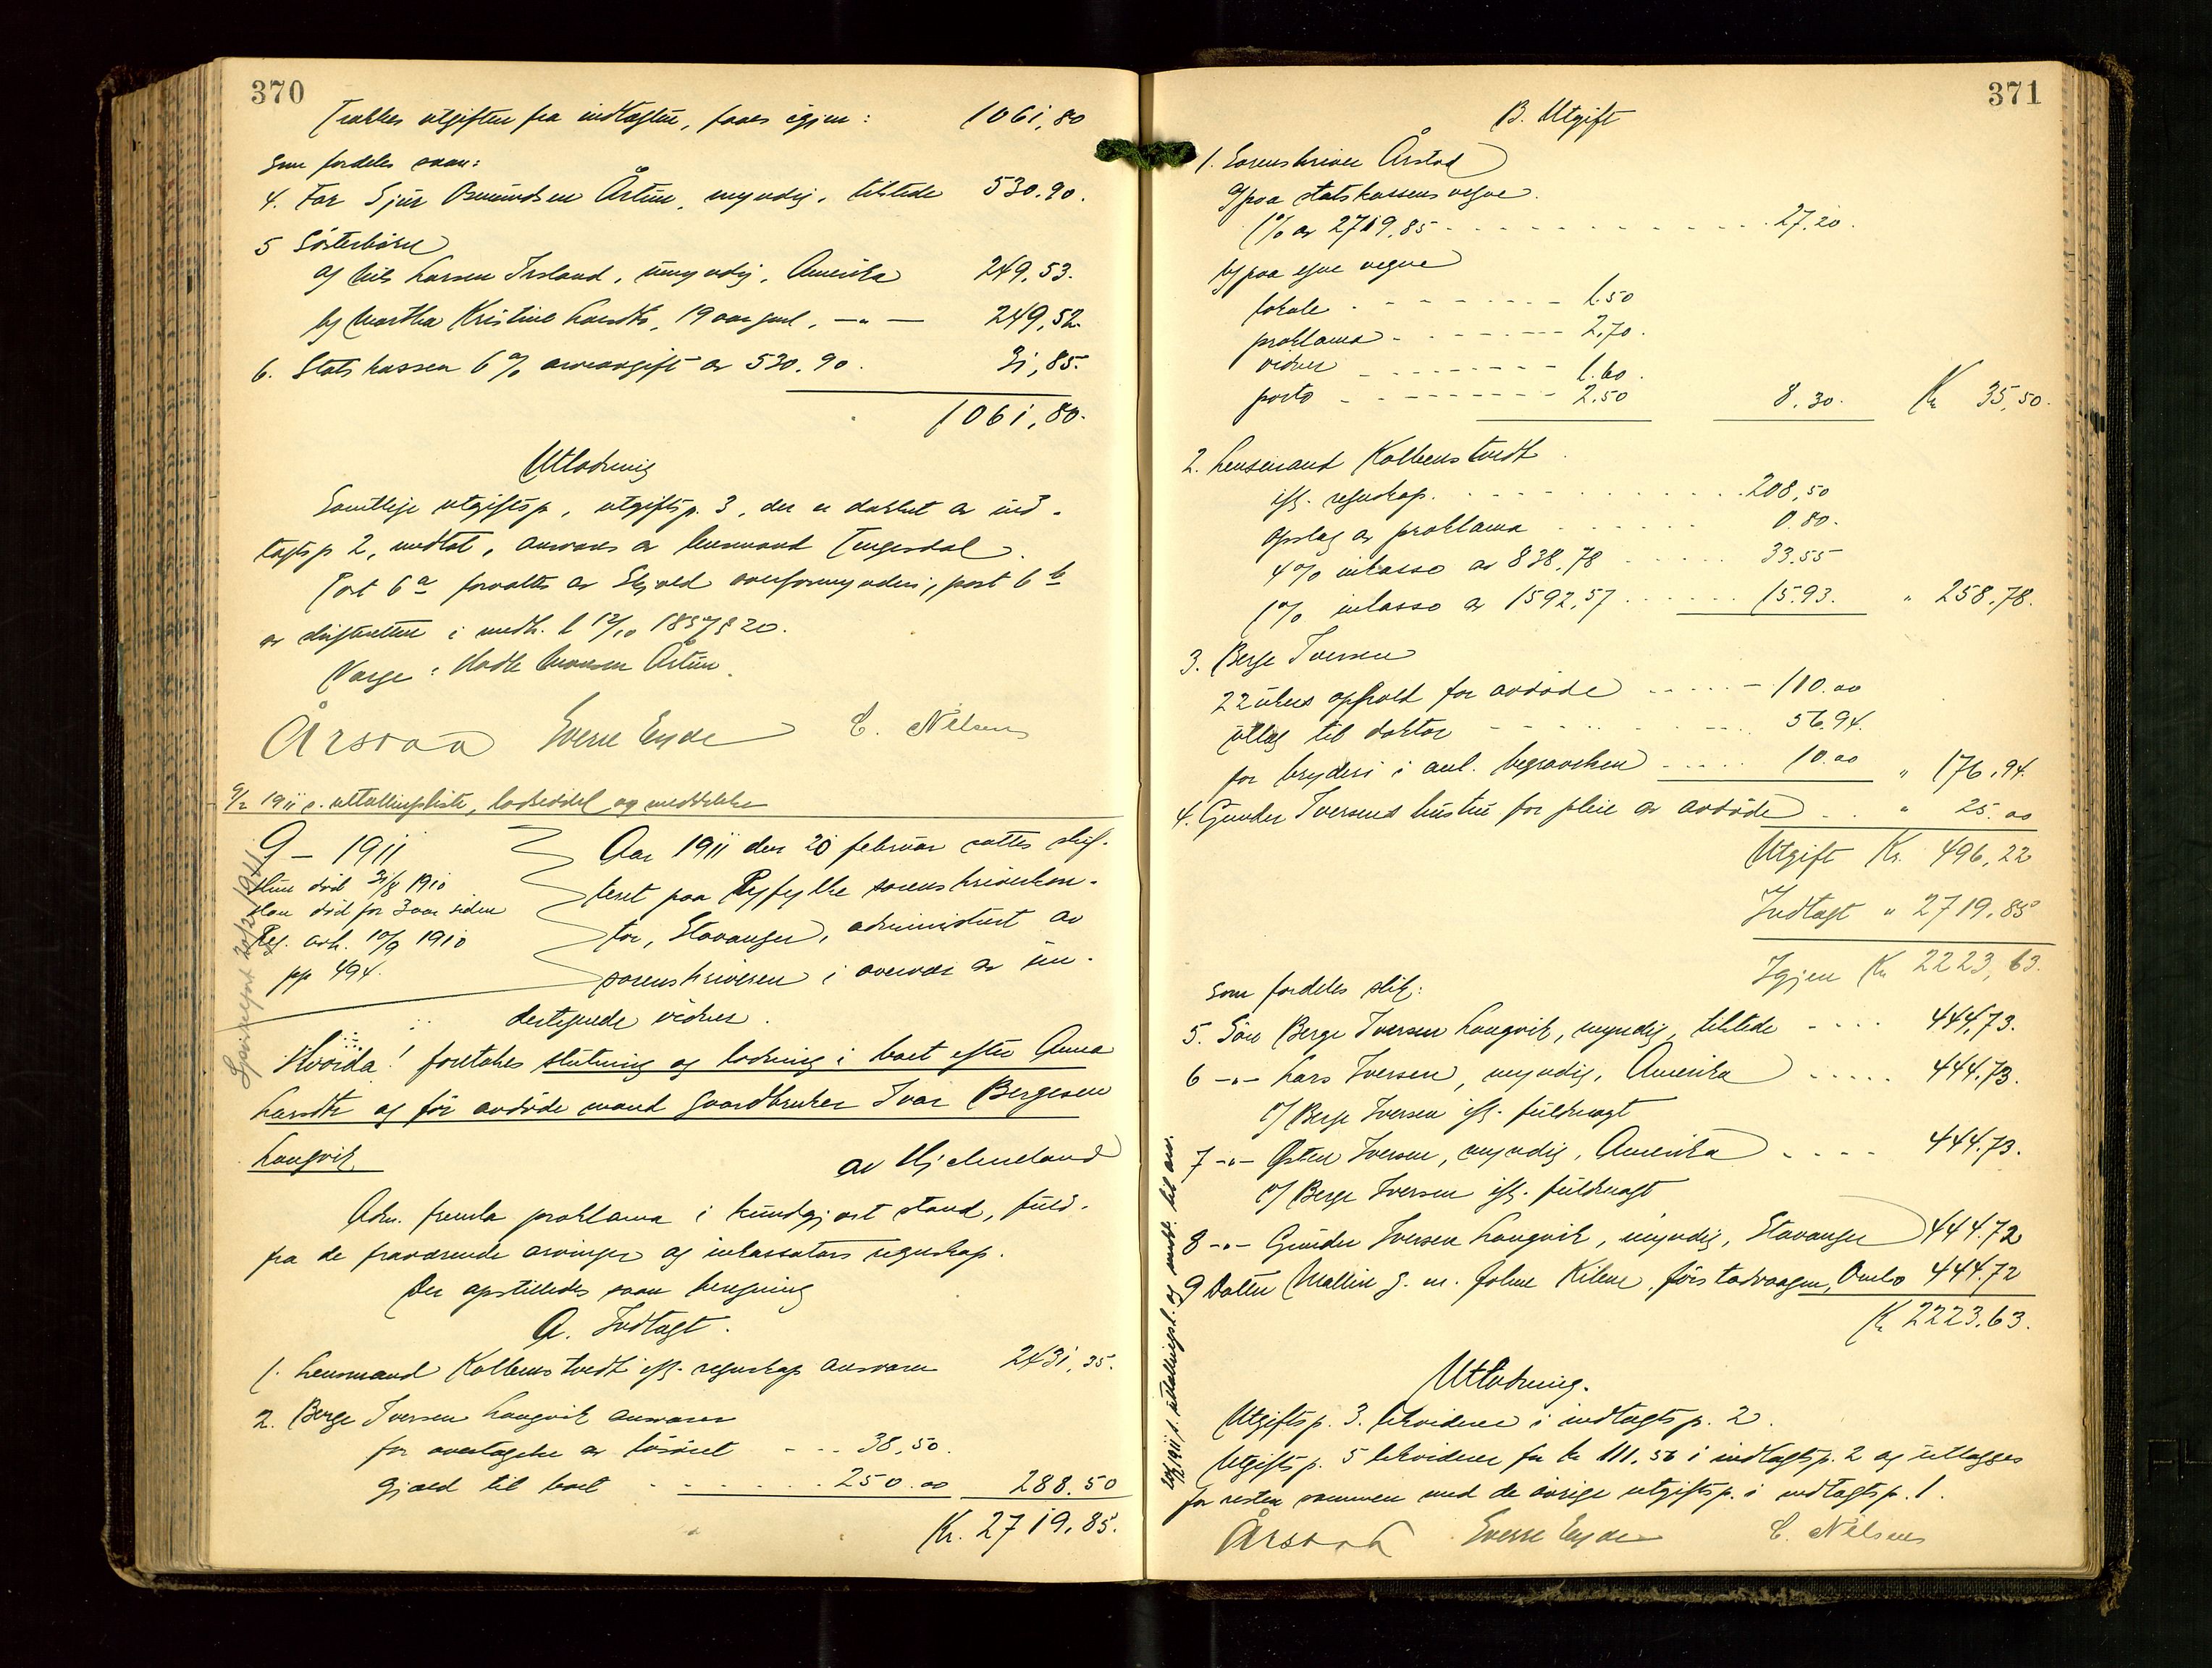 370
Trækkes utgiften fra indtægten, faaes igjen: 1061,80
som fordeles saan:
4. Far Sjur Osmundsen Årtun, myndig, tilstede 530.90.
5 Søsterbørn
a) Nils Larsen Irsland, umyndig, Amerika 249,53.
b) Martha Kristine Larsdtr, 19 aar gml. —"— 249,52.
6. Statskassen 6% arveavgift av 530,90. 31,85.
1061,80.
Utlodning
Samtlige utgiftsp, utgiftsp. 3, der er dækket av ind-
tægtsp 2, undtat, anvises av lensmand Tengesdal.
Post 6a forvaltes av Skjold overformynderi, post 6 b
av skifteretten i medh. l 12/10 1857 § 20.
Værge: Malle Årtun.
Årstad Sverre Eyde C. Nilsen
9/2 1911 s. uttællingsliste, lodseddel og meddelelse
9 – 1911
Hun død 31/8 1910
Han død for 3 aar siden
Reg. avh. 10/9 1910
pp 494.
20/2 1911
Aar 1911 den 20 februar sattes skif-
teret paa Ryfylke sorenskriverkon-
tor, Stavanger, administrert av
sorenskriveren i overvær av un-
dertegnede vidner.
Hvorda! foretokes slutning og lodning i boet efter Anna
Larsdtr og før avdøde mand gaardbruker Ivar Bergesen
Langvik av Hjelmeland
Adm. fremla proklama i kundgjort stand, fuld.
fra de fraværende arvinger og inkassators regnskap.
Der opstilledes saan beregning
A. Indtægt.
1. Lensmand Kolbenstvedt ifl. regnskap ansvarer 2431,35.
2. Berge Iversen Langvik ansvarer
for overtagelse av løsøret - - - 38,50.
gjæld til boet - - - - - - 250.00 288.50
Kr. 2719,85.
371
B. Utgift
1. Sorenskriver Årstad
a) paa statskassens vegne.
1% av 2719,85 - - - - - - - - - - - 27,20.
b) paa egne vegne
lokale - - - - - - - - 1.50
proklama - - - - - - - 2,70.
vidner - - - - - - - - 1.60.
porto - - - - - - - - - 2.50 8,30. Kr 35,50.
2. Lensmand Kolbenstvedt
ifl. regnskap. - - - - - - - - - - 208,50
opslag av proklama - - - - - - 0.80.
4% inkasso av 838,78 - - - - - 33.55
1% inkasso av 1592,57 - - - - - - 15.93. " 258,78.
3. Berge Iversen
22 ukers ophold for avdøde - - - - - 110.00
utlæg til doktor - - - - - - - - 56,94.
for bryderi i anl. begravelsen - - - - - 10.00 " 176,94.
4. Gunder Iversens hustru for pleie av avdøde - - " 25.00
Utgift Kr. 496,22
Indtægt " 2719,85
Igjen Kr 2223,63.
som fordeles slik:
5. Søn Berge Iversen Langvik, myndig, tilstede - - - - 444,73.
6 -"- Lars Iversen, myndig, Amerika - - - - - 444.73.
v/ Berge Iversen ifl. fuldmagt
7 -"- Østen Iversen, myndig, Amerika - - - - 444.73.
v/ Berge Iversen ifl. fuldmagt
8 -"- Gunder Iversen Langvik, myndig, Stavanger 444.72
9 Datter Mallin g. m. Kilene, Ombo 444.72
Kr 2223.63.
Utlodning.
Utgiftsp. 3. likviderer i indtægtsp. 2.
Utgiftsp. 5 likviderer for kr 111,56 i indtægtsp. 2 og utlægges
for resten sammen med de øvrige utgiftsp. i indtægtsp. 1.
Årstad Sverre Eyde C. Nilsen
1911 s. uttællingsl. og medd. til arv.